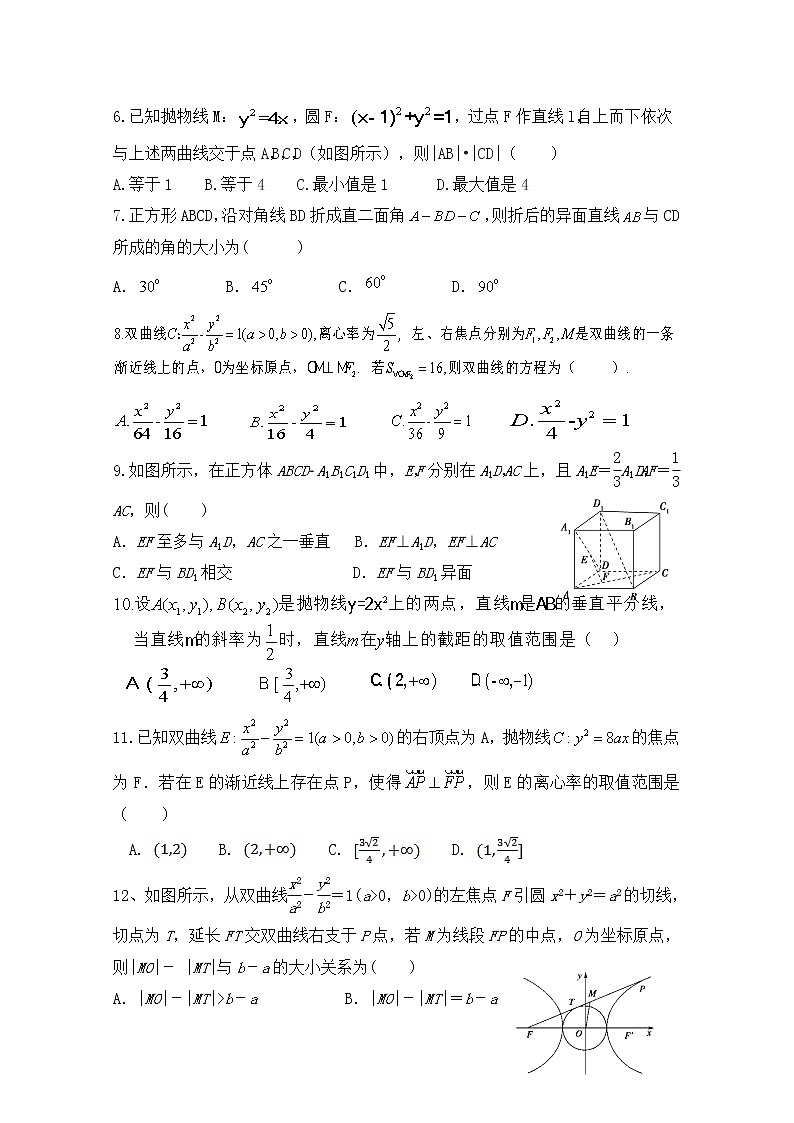 6.已知抛物线 M：y²=4x，圆 F：(x-1)²+y²=1，过点 F 作直线 l,自上而下依次
与上述两曲线交于点 A,B,C,D（如图所示），则|AB|•|CD|（　　）
A.等于 1　B.等于 4　C.最小值是 1　D.最大值是 4
7.正方形 ABCD,沿对角线 BD 折成直二面角 A－BD－C ,则折后的异面直线 AB 与 CD
所成的角的大小为(　　)
A. 30°　B. 45°　C. 60°　D. 90°
8.双曲线C:x²/a²-y²/b²=1(a>0,b>0),离心率为√5/2，左、右焦点分别为F₁,F₂,M是双曲线的一条
渐近线上的点，O为坐标原点，OM⊥MF₂. 若S▽OMF₂=16,则双曲线的方程为（　　）.
A.x²/64-y²/16=1　B.x²/16-y²/4=1　C.x²/36-y²/9=1　D.x²/4-y²=1
9.如图所示，在正方体 ABCD-A₁B₁C₁D₁中，E,F 分别在 A₁D,AC 上，且 A₁E＝2/3A₁D,AF＝1/3
AC，则(　　)
A．EF 至多与 A₁D，AC 之一垂直　B．EF⊥A₁D，EF⊥AC
C．EF 与 BD₁相交　D．EF 与 BD₁异面
D₁
C₁
A₁
B₁
E
D
F
C
A
B
10.设A(x₁,y₁), B(x₂,y₂)是抛物线y=2x²上的两点，直线m是AB的垂直平分线，
当直线m的斜率为1/2时，直线m在y轴上的截距的取值范围是（　）
A（3/4,+∞)　B [3/4,+∞)　C.(2,+∞)　D.(-∞,-1)
11.已知双曲线 E:x²/a²－y²/b²=1(a>0,b>0)的右顶点为 A，抛物线 C:y²=8ax 的焦点
为 F．若在 E 的渐近线上存在点 P，使得AP⊥FP，则 E 的离心率的取值范围是
（　　）
A. (1,2)　B. (2,+∞)　C. [3√2/4,+∞)　D. (1,3√2/4]
12、如图所示，从双曲线x²/a²－y²/b²＝1(a>0，b>0)的左焦点 F 引圆 x²＋y²＝a²的切线，
切点为 T，延长 FT 交双曲线右支于 P 点，若 M 为线段 FP 的中点，O 为坐标原点，
则|MO|－ |MT|与 b－a 的大小关系为(　　)
A．|MO|－|MT|>b－a　B．|MO|－|MT|＝b－a
y
P
M
T
F
O
F'
x